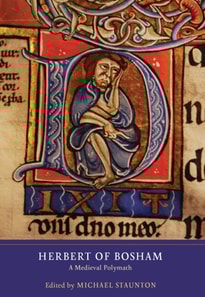 D
IXIT
dno meo.
HERBERT OF BOSHAM
A Medieval Polymath
Edited by MICHAEL STAUNTON